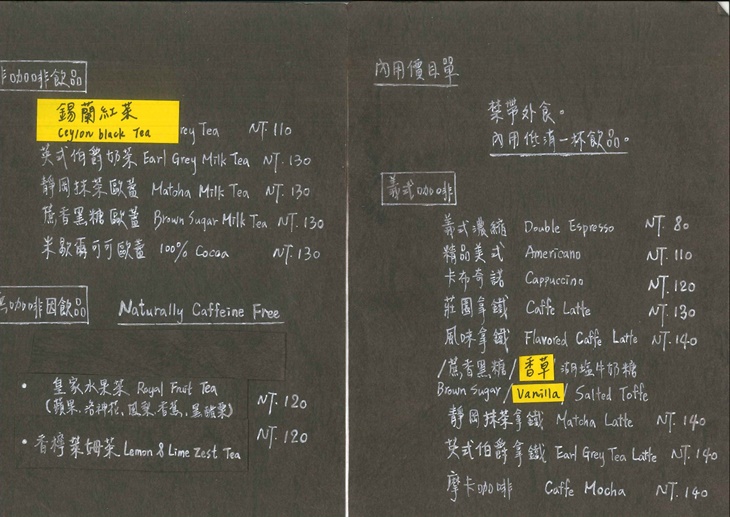 咖啡飲品
錫蘭紅茶
Ceylon black Tea
rey Tea NT. 110
英式伯爵奶茶 Earl Grey Milk Tea NT. 130
靜岡抹茶歐蕾 Matcha Milk Tea NT. 130
蔗香黑糖歐蕾 Brown Sugar Milk Tea NT. 130
米歇爾可可歐蕾 100% Cocoa NT. 130
咖啡因飲品 Naturally Caffeine Free
• 皇家水果茶 Royal Fruit Tea NT. 120
(蘋果、洛神花、鳳梨、香蕉、黑醋栗)
• 香檸葉姆茶 Lemon & Lime Zest Tea NT. 120
內用價目單
禁帶外食。
內用低消一杯飲品。
義式咖啡
義式濃縮 Double Espresso NT. 80
精品美式 Americano NT. 110
卡布奇諾 Cappuccino NT. 120
莊園拿鐵 Caffe Latte NT. 130
風味拿鐵 Flavored Caffe Latte NT. 140
/蔗香黑糖/香草/湖塩牛奶糖
Brown Sugar/Vanilla/Salted Toffe
靜岡抹茶拿鐵 Matcha Latte NT. 140
英式伯爵拿鐵 Earl Grey Tea Latte NT. 140
摩卡咖啡 Caffe Mocha NT. 140